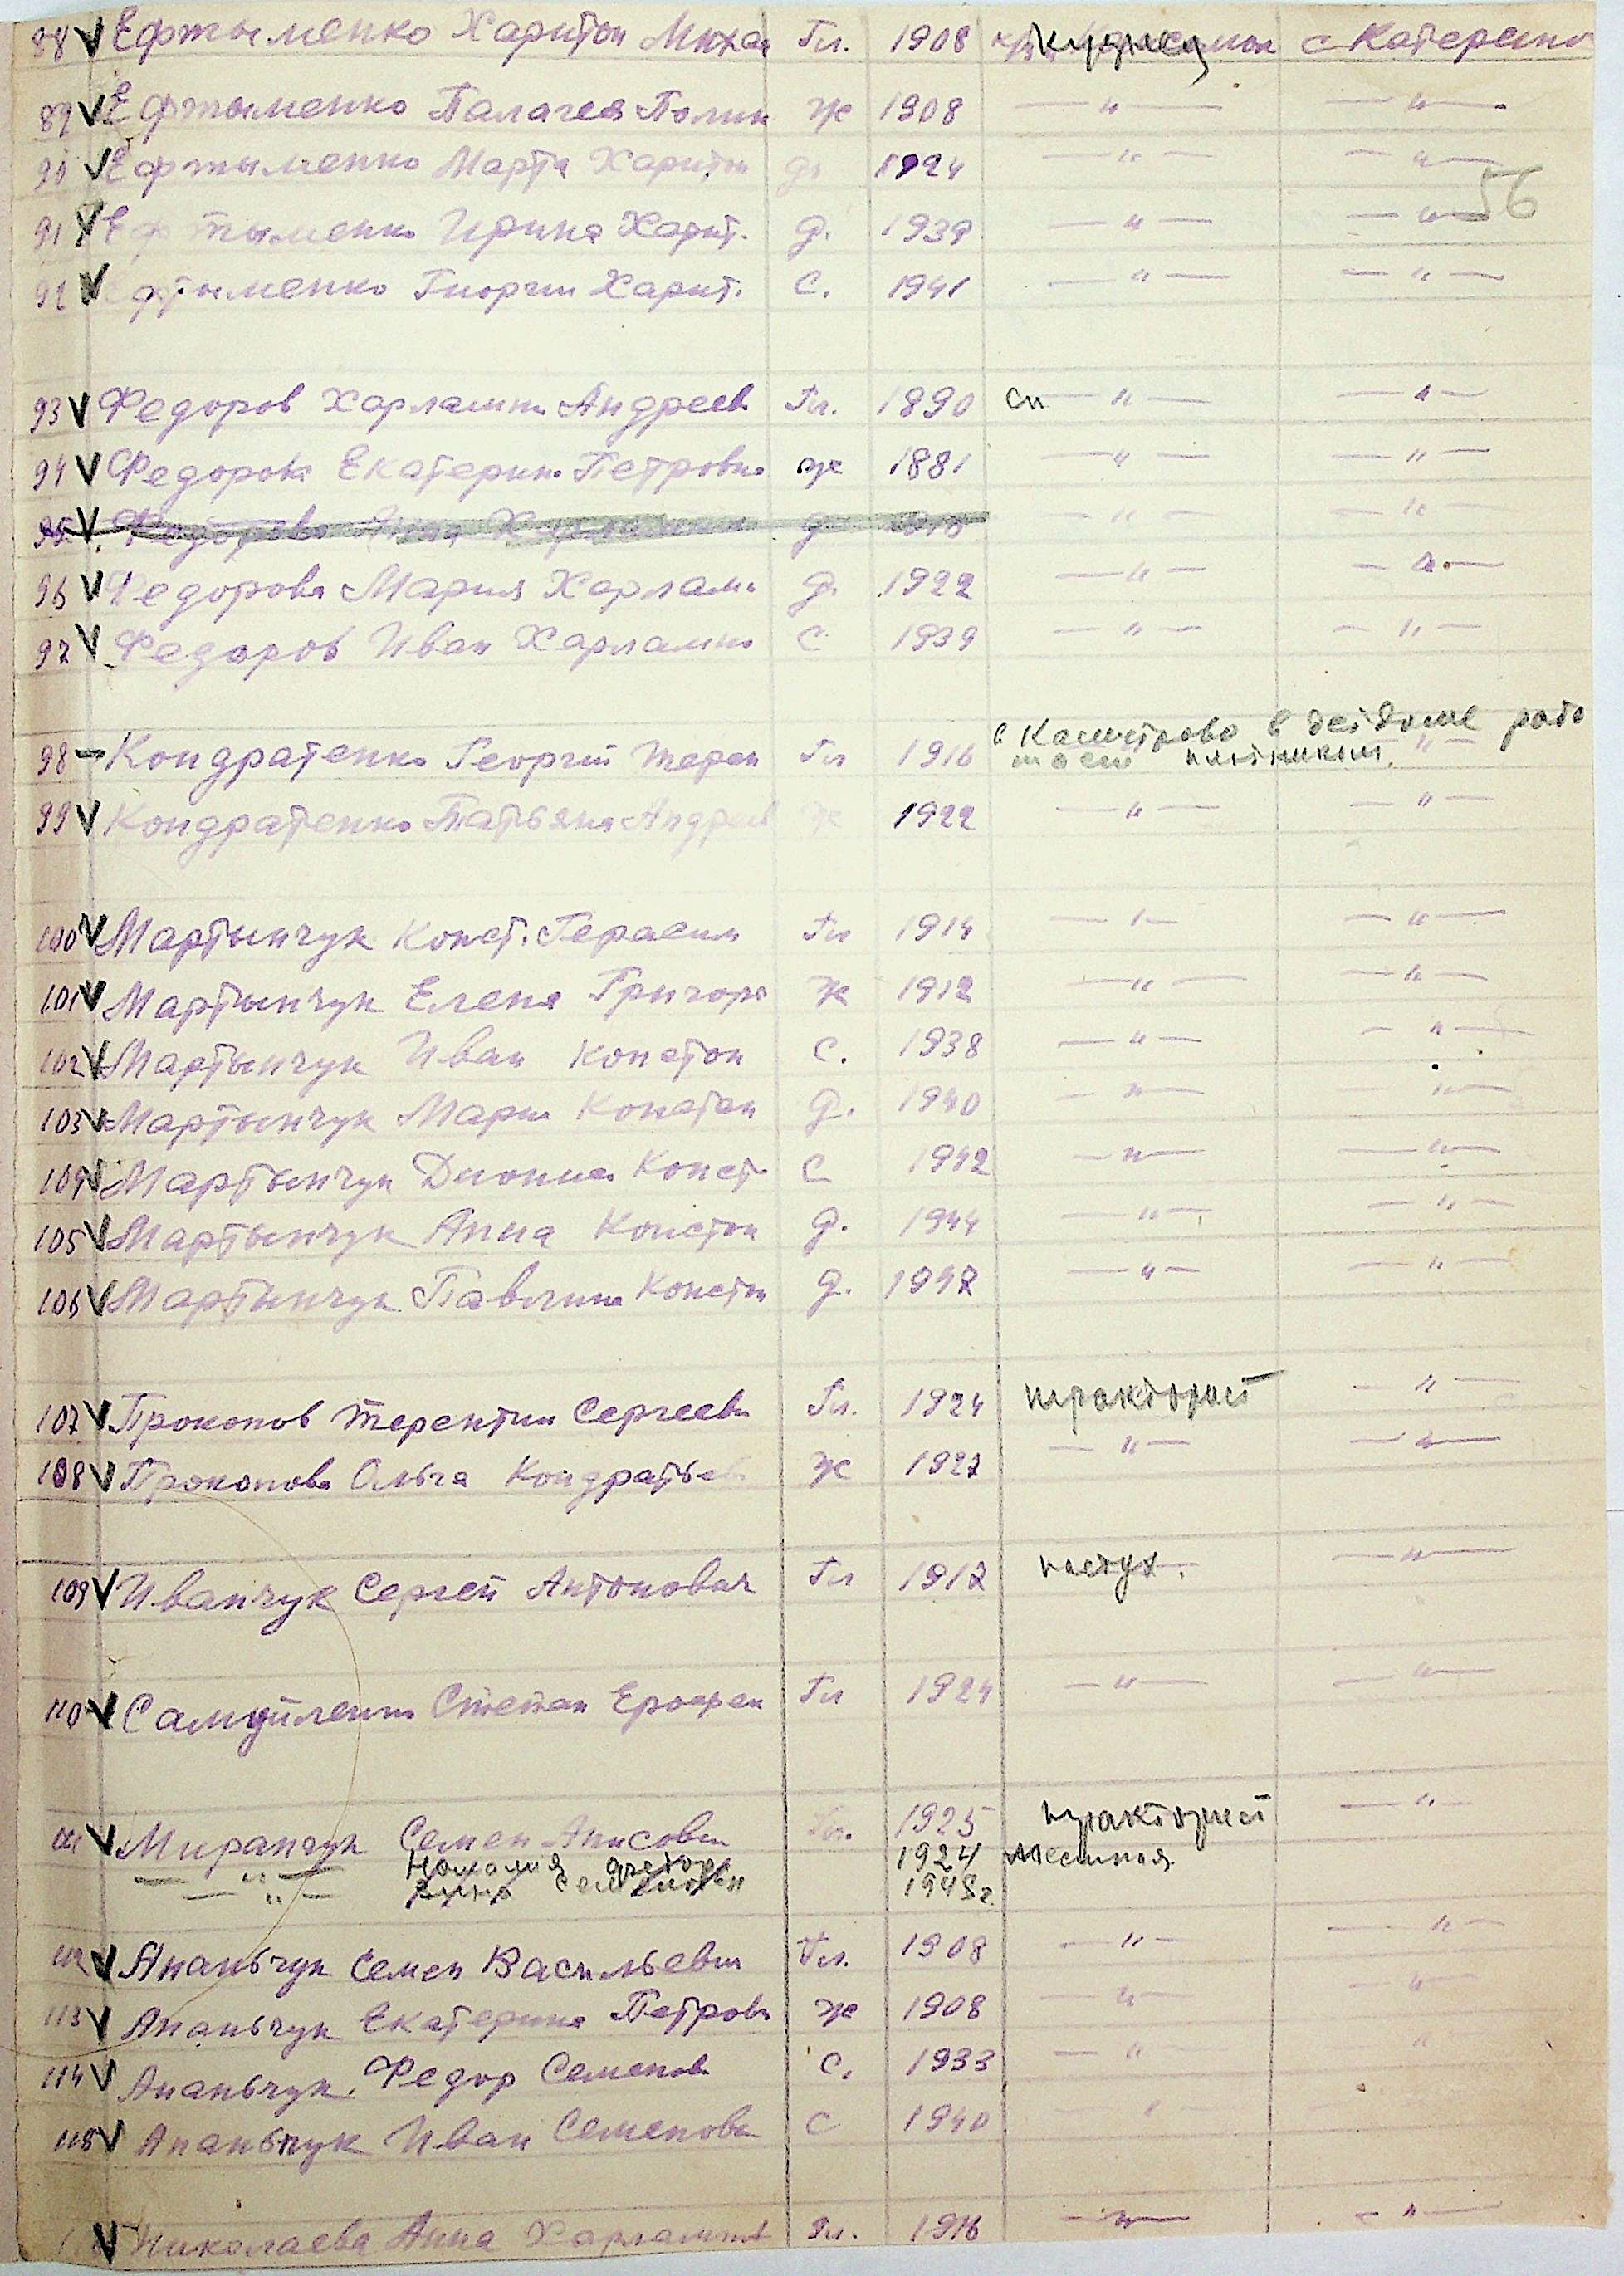 88 V Ефтыменко Харитон Михай Гл. 1908 кузнец с Катерино
89 V Ефтыменко Палагея Полик ж 1908 —"— —"—
90 V Ефтыменко Марта Харитон д. 1924 —"— —"—
56
91 V Ефтыменко Ирина Харит. д. 1939 —"— —"—
92 V Ефтыменко Гиорги Харит. С. 1941 —"— —"—
93 V Федоров Харлампи Андреев Гл. 1890 сп —"— —"—
94 V Федорова Екатерина Петровна ж 1881 —"— —"—
95 V Федорова Харлампи д —"— —"—
96 V Федорова Мария Харламп д. 1922 —"— —"—
97 V Федоров Иван Харлампи С 1939 —"— —"—
с Каштрово в детдоме рабо
98 – Кондратенко Георгий Терен Гл 1916 тает плотником. —"—
99 V Кондратенко Татьяна Андреев ж 1922 —"— —"—
100 V Мартынчук Конст. Герасим Гл 1914 —"— —"—
101 V Мартынчук Елена Григорь ж 1912 —"— —"—
102 V Мартынчук Иван Констан С. 1938 —"— —"—
103 V Мартынчук Мари Констан д. 1940 —"— —"—
104 V Мартынчук Диониса Конст С 1942 —"— —"—
105 V Мартынчук Анна Констан д. 1944 —"— —"—
106 V Мартынчук Павлина Констан д. 1947 —"— —"—
107 V Прокопов Терентии Сергееви Гл. 1924 тракторист —"—
108 V Прокопова Ольга Кондратьев ж 1927 —"— —"—
109 V Иванчук Сергей Антонович Гл 1917 пастух. —"—
110 V Самуйленко Степан Ерофеи Гл 1924 —"— —"—
111 V Миранчук Семен Анисови Гл. 1925 тракторист —"—
—"— Наталия 1924 местная
—"— Семенов 1948г
112 V Ананьчук Семен Васильевич Гл. 1908 —"— —"—
113 V Ананьчук Екатерина Петровн ж 1908 —"— —"—
114 V Ананьчук Федор Семенов С. 1933 —"— —"—
115 V Ананьчук Иван Семенови С 1940 —"—
V Николаева Анна Харлампие Гл. 1916 —"— —"—